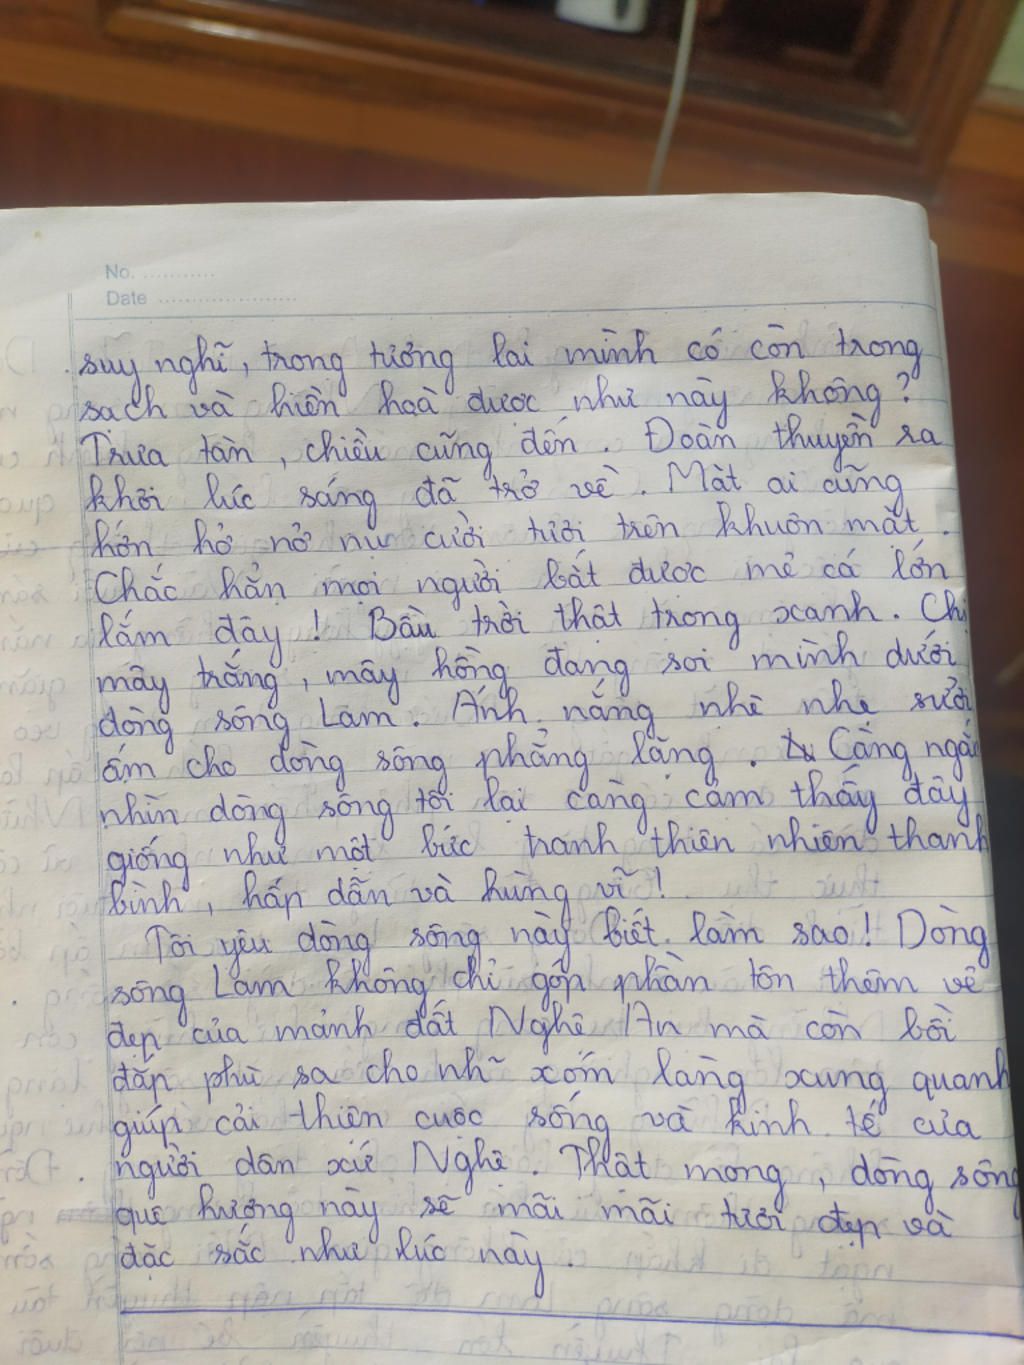 No. ...........
Date .....................
suy nghĩ, trong tương lai mình có còn trong
sạch và hiền hoà được như này không?
Trưa tàn, chiều cũng đến. Đoàn thuyền ra
khơi lúc sáng đã trở về. Mặt ai cũng
hớn hở nở nụ cười tươi trên khuôn mặt.
Chắc hẳn mọi người bắt được mẻ cá lớn
lắm đây! Bầu trời thật trong xanh. Chị
mây trắng, mây hồng đang soi mình dưới
dòng sông Lam. Ánh nắng nhè nhẹ sưởi
ấm cho dòng sông phẳng lặng. Càng ngắm
nhìn dòng sông tôi lại càng cảm thấy đây
giống như một bức tranh thiên nhiên thanh
bình, hấp dẫn và hùng vĩ!
Tôi yêu dòng sông này biết làm sao! Dòng
sông Lam không chỉ góp phần tôn thêm vẻ
đẹp của mảnh đất Nghệ An mà còn bồi
đắp phù sa cho nh~ xóm làng xung quanh
giúp cải thiện cuộc sống và kinh tế của
người dân xứ Nghệ. Thật mong, dòng sông
quê hương này sẽ mãi mãi tươi đẹp và
đặc sắc như lúc này.